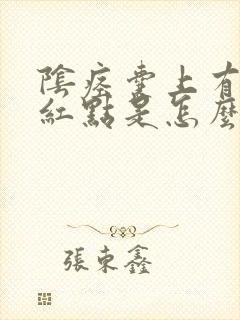 陰痉囊上有
紅點是怎麼
張東鑫